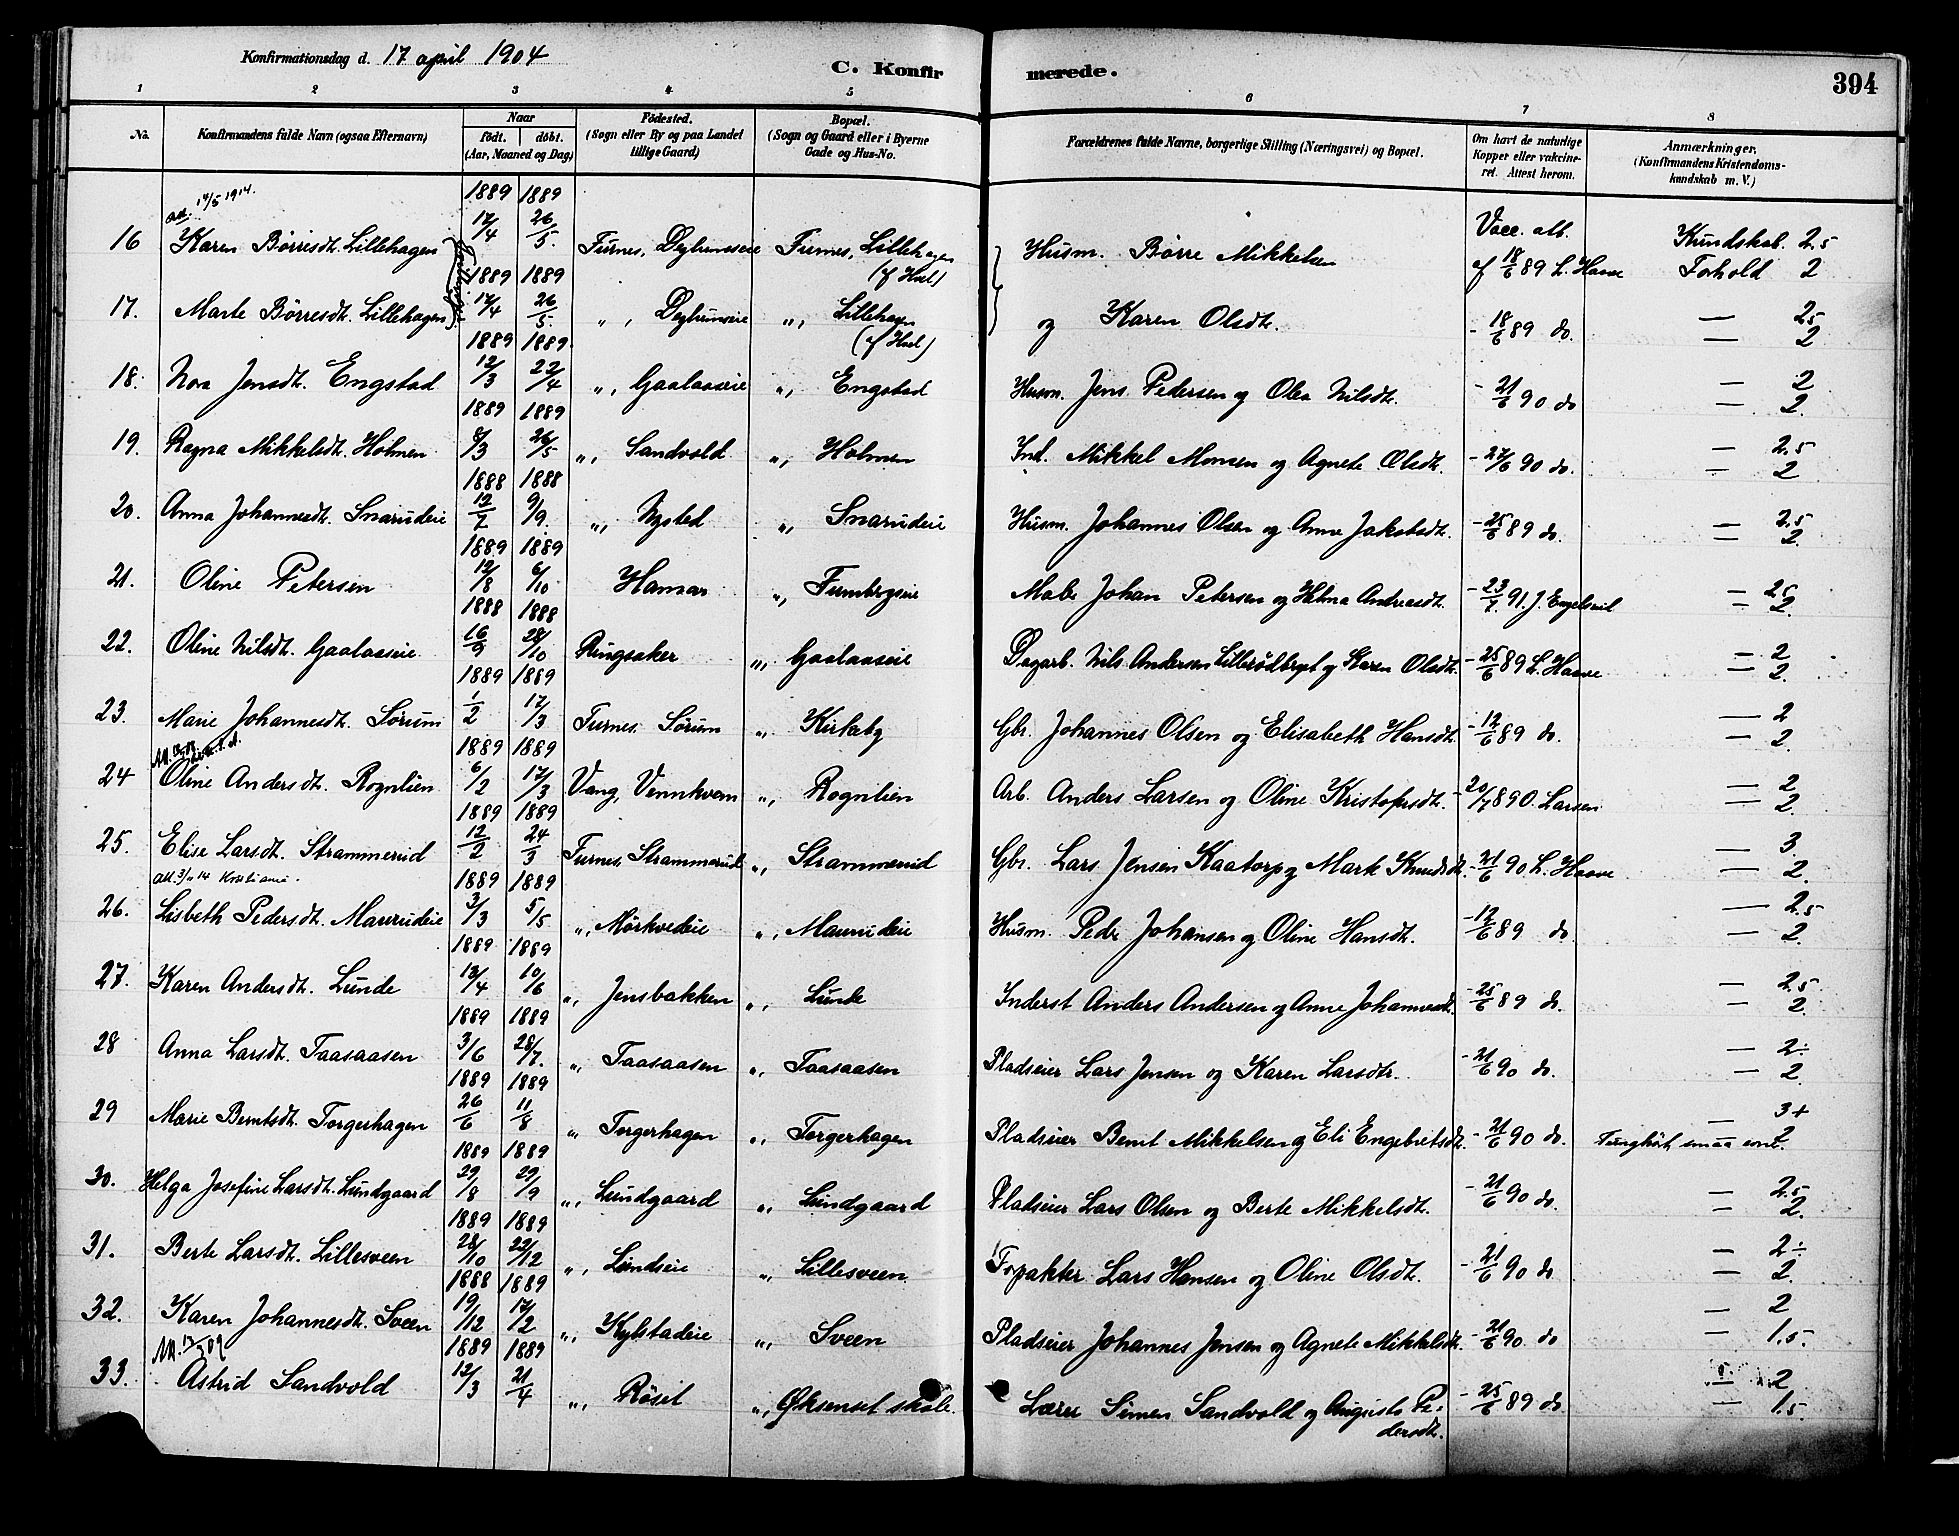 Konfirmationsdag d. 17 april 1904
C. Konfirmerede.
394
1 2 3 4 5 6 7 8
No. Konfirmandens fulde Navn (ogsaa Efternavn) Naar født. døbt. (Aar, Maaned og Dag) Fødested. (Sogn eller By og paa Landet tillige Gaard) Bopæl. (Sogn og Gaard eller i Byerne Gade og Hus-No. Forældrenes fulde Navne, borgerlige Stilling (Næringsvei) og Bopæl. Om havt de naturlige Kopper eller vakcineret. Attest herom. Anmærkninger. (Konfirmandens Kristendomskundskab m. V.)
att. 14/5 1914.
16 Karen Børresdt. Lillehagen 1889 17/4 1889 26/5 Furnes, Deglumseie Furnes, Lillehagen Husm. Børre Mikkelsen Vacc. att. af 18/6 89 L. Haave Kundskab. 2.5 Forhold 2
17. Marte Børresdt. Lillehagen 1889 17/4 1889 26/5. „, Deglumseie „, Lillehagen og Karen Olsdt. - 18/6 89 do — 2.5 — 2
18. Nora Jensdt. Engstad 1889 12/3 1889 22/4 „, Gaalaaseie „, Engstad Husm. Jens Pedersen og Olea Nilsdt. - 21/6 90 do — 2 — 2.
19. Ragna Mikkelsdt. Holmen 1889 8/3 1889 26/5 „, Sandvold „, Holmen Ind. Mikkel Monsen og Agnete Olsdt. - 27/6 90 do. — 2.5 — 2
20. Anna Johannesdt. Snarudeie 1888 12/7 1888 9/9. „, Nysted „, Snarudeie Husm. Johannes Olsen og Anne Jakobsdt. - 25/6 89 do. — 2.5 — 2.
21. Oline Petersen 1889 12/8 1889 6/10 Hamar „, Furubergseie Johan Petersen og Helma Andreasdt. - 23/7. 91. J. Engelsvil — 2.5 — 2.
22. Oline Nilsdt. Gaalaaseie 1888 16/9 1888 28/10 Ringsaker „, Gaalaaseie Dagarb. Nils Andersen Lillerødbryet og Karen Olsdt. - 25/6 89 L. Haave — 2 — 2.
23. Marie Johannesdt. Sørum 1889 1/2 1889 17/3 Furnes. Sørum „, Kirkeby Gbr. Johannes Olsen og Elisabeth Hansdt. - 12/6 89 do. — 2 — 2.
24 Oline Andersdt. Rognlien 1889 6/2 1889 17/3 Vang, Vennkvern „, Rognlien Arb. Anders Larsen og Oline Kristofersdt. - 20/7 890. Larsen — 2 — 2.
25. Elise Larsdt. Strammerud 1889 12/2 1889 24/3 Furnes, Strammerud „, Strammerud Gbr. Lars Jensen Kaatorp og Mart Knudsdt. - 21/6 90 L. Haave — 3. — 2.
26. Lisbeth Pedersdt. Maurudeie 1889 3/3 1889 5/5 „, Mørkvedeie „, Maurudeie Husm. Peder Johansen og Oline Hansdt. - 12/6 89 do. — 2.5 — 2.
27. Karen Andersdt. Lunde 1889 13/4 1889 10/6 „, Jensbakken „, Lunde Inderst Anders Andersen og Anne Johannesdt. - 25/6 89 do. — 2.5 — 2.
28 Anna Larsdt. Taasaasen 1889 3/6 1889 28/7. „, Taasaasen „, Taasaasen Pladseier Lars Jensen og Karen Larsdtr. - 21/6 90 do. — 2÷ — 2.
29 Marie Berntsdt. Torgerhagen 1889 26/6 1889 11/8 „ Torgerhagen „, Torgerhagen Pladseier Bernt Mikkelsen og Eli Engebretsdt. - 21/6 90 do. Tunghørt, smaa evn. — 3+ 2
30. Helga Josefine Larsdt. Lundgaard 1889 29/8 1889 29/9 „, Lundgaard „, Lundgaard Pladseier Lars Olsen og Berte Mikkelsdt. - 21/6 90 do. — 2.5 — 2.
31. Berte Larsdt. Lillesveen 1889 28/10 1889 22/12 „, Lundseie „, Lillesveen Forpakter Lars Hansen og Oline Olsdt. - 21/6 90 do — 2÷ — 2.
32. Karen Johannesdt. Sveen 1888 19/12 1889 17/2 „, Kylstadeie „, Sveen Pladseier Johannes Jensen og Agnete Mikkelsdt. - 21/6 90. do — 2 — 1.5
33. Astrid Sandvold 1889 12/3 1889 21/4 „, Røset „, Øksenset skole. Lærer Simen Sandvold og Augusta Pedersdt. - 25/6 89 do — 2 — 1.5.